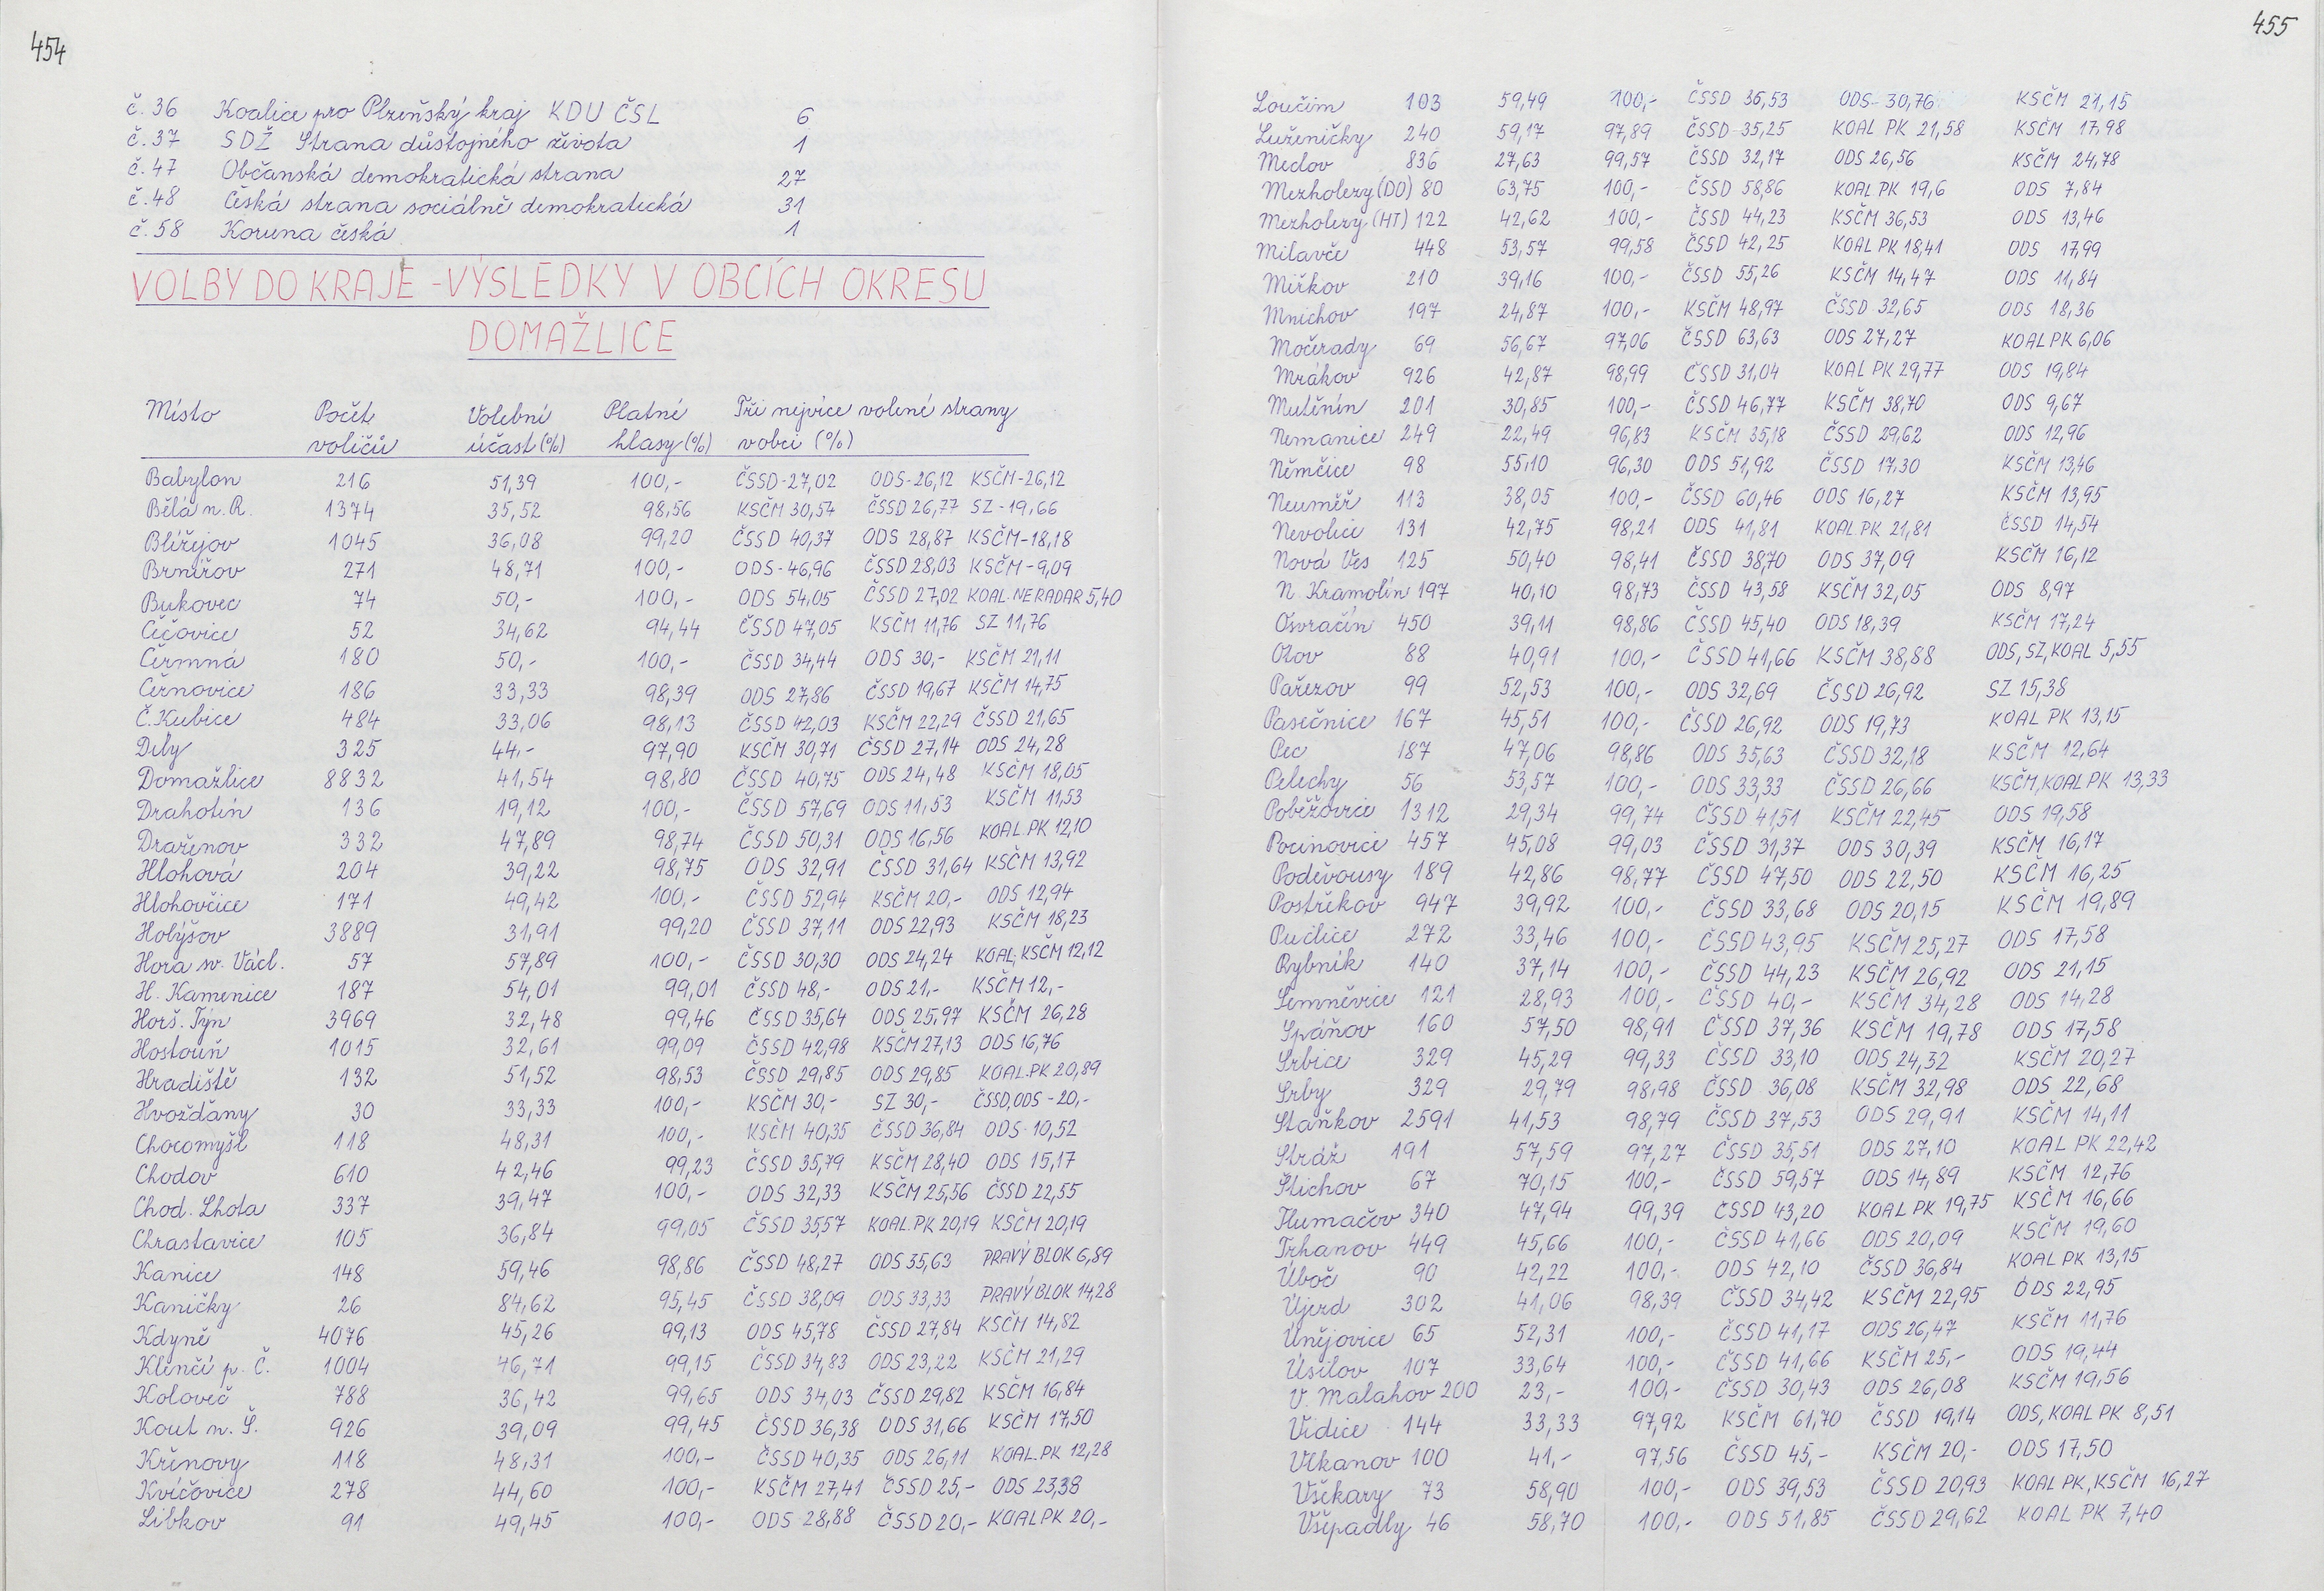 454
č. 36 Koalice pro Plzeňský kraj KDU ČSL 6
č. 37 SDŽ Strana důstojného života 1
č. 47 Občanská demokratická strana 27
č. 48 Česká strana sociálně demokratická 31
č. 58 Koruna česká 1
VOLBY DO KRAJE - VÝSLEDKY V OBCÍCH OKRESU
DOMAŽLICE
Místo Počet Volební Platné Tři nejvíce volené strany
voličů účast (%) hlasy (%) v obci (%)
Babylon 216 51,39 100,- ČSSD-27,02 ODS-26,12 KSČM-26,12
Bělá n. R. 1374 35,52 98,56 KSČM 30,54 ČSSD 26,77 SZ-19,66
Blížejov 1045 36,08 99,20 ČSSD 40,37 ODS 28,87 KSČM-18,18
Brnířov 271 48,71 100,- ODS-46,96 ČSSD 28,03 KSČM-9,09
Bukovec 74 50,- 100,- ODS 54,05 ČSSD 27,02 KOAL. NERADAR 5,40
Čečovice 52 34,62 94,44 ČSSD 47,05 KSČM 11,76 SZ 11,76
Čermná 180 50,- 100,- ČSSD 34,44 ODS 30,- KSČM 21,11
Černovice 186 33,33 98,39 ODS 27,86 ČSSD 19,67 KSČM 14,75
Č. Kubice 484 33,06 98,13 ČSSD 42,03 KSČM 22,29 ČSSD 21,65
Díly 325 44,- 97,90 KSČM 30,71 ČSSD 27,14 ODS 24,28
Domažlice 8832 41,54 98,80 ČSSD 40,75 ODS 24,48 KSČM 18,05
Drahotín 136 19,12 100,- ČSSD 57,69 ODS 11,53 KSČM 11,53
Draženov 332 47,89 98,74 ČSSD 50,31 ODS 16,56 KOAL. PK 12,10
Hlohová 204 39,22 98,75 ODS 32,91 ČSSD 31,64 KSČM 13,92
Hlohovčice 171 49,42 100,- ČSSD 52,94 KSČM 20,- ODS 12,94
Holýšov 3889 31,91 99,20 ČSSD 37,11 ODS 22,93 KSČM 18,23
Hora sv. Václ. 57 57,89 100,- ČSSD 30,30 ODS 24,24 KOAL, KSČM 12,12
H. Kamenice 187 54,01 99,01 ČSSD 48,- ODS 21,- KSČM 12,-
Horš. Týn 3969 32,48 99,46 ČSSD 35,64 ODS 25,97 KSČM 26,28
Hostouň 1015 32,61 99,09 ČSSD 42,98 KSČM 27,13 ODS 16,76
Hradiště 132 51,52 98,53 ČSSD 29,85 ODS 29,85 KOAL. PK 20,89
Hvožďany 30 33,33 100,- KSČM 30,- SZ 30,- ČSSD, ODS - 20,-
Chocomyšl 118 48,31 100,- KSČM 40,35 ČSSD 36,84 ODS - 10,52
Chodov 610 42,46 99,23 ČSSD 35,79 KSČM 28,40 ODS 15,17
Chod. Lhota 337 39,47 100,- ODS 32,33 KSČM 25,56 ČSSD 22,55
Chrastavice 105 36,84 99,05 ČSSD 35,57 KOAL. PK 20,19 KSČM 20,19
Kanice 148 59,46 98,86 ČSSD 48,27 ODS 35,63 PRAVÝ BLOK 6,89
Kaničky 26 84,62 95,45 ČSSD 38,09 ODS 33,33 PRAVÝ BLOK 14,28
Kdyně 4076 45,26 99,13 ODS 45,78 ČSSD 27,84 KSČM 14,82
Klenčí p. Č. 1004 46,71 99,15 ČSSD 34,83 ODS 23,22 KSČM 21,29
Koloveč 788 36,42 99,65 ODS 34,03 ČSSD 29,82 KSČM 16,84
Kout n. Š. 926 39,09 99,45 ČSSD 36,38 ODS 31,66 KSČM 17,50
Křenovy 118 48,31 100,- ČSSD 40,35 ODS 26,11 KOAL. PK 12,28
Kvíčovice 278 44,60 100,- KSČM 27,41 ČSSD 25,- ODS 23,38
Libkov 91 49,45 100,- ODS 28,88 ČSSD 20,- KOAL PK 20,-
455
Loučim 103 59,49 100,- ČSSD 36,53 ODS 30,76 KSČM 21,15
Luženičky 240 59,17 97,89 ČSSD 35,25 KOAL PK 21,58 KSČM 17,98
Meclov 836 27,63 99,57 ČSSD 32,17 ODS 26,56 KSČM 24,78
Mezholezy (DO) 80 63,75 100,- ČSSD 58,86 KOAL PK 19,6 ODS 7,84
Mezholezy (HT) 122 42,62 100,- ČSSD 44,23 KSČM 36,53 ODS 13,46
Milavče 448 53,57 99,58 ČSSD 42,25 KOAL PK 18,41 ODS 17,99
Mířkov 210 39,16 100,- ČSSD 55,26 KSČM 14,47 ODS 11,84
Mnichov 197 24,87 100,- KSČM 48,97 ČSSD 32,65 ODS 18,36
Močerady 69 56,67 97,06 ČSSD 63,63 ODS 27,27 KOAL PK 6,06
Mrákov 926 42,87 98,99 ČSSD 31,04 KOAL PK 29,77 ODS 19,84
Mutěnín 201 30,85 100,- ČSSD 46,77 KSČM 38,70 ODS 9,67
Nemanice 249 22,49 96,83 KSČM 35,18 ČSSD 29,62 ODS 12,96
Němčice 98 55,10 96,30 ODS 51,92 ČSSD 17,30 KSČM 13,46
Neuměř 113 38,05 100,- ČSSD 60,46 ODS 16,27 KSČM 13,95
Nevolice 131 42,75 98,21 ODS 41,81 KOAL. PK 21,81 ČSSD 14,54
Nová Ves 125 50,40 98,41 ČSSD 38,70 ODS 37,09 KSČM 16,12
N. Kramolín 197 40,10 98,73 ČSSD 43,58 KSČM 32,05 ODS 8,97
Osvračín 450 39,11 98,86 ČSSD 45,40 ODS 18,39 KSČM 17,24
Otov 88 40,91 100,- ČSSD 41,66 KSČM 38,88 ODS, SZ, KOAL 5,55
Pařezov 99 52,53 100,- ODS 32,69 ČSSD 26,92 SZ 15,38
Pasečnice 167 45,51 100,- ČSSD 26,92 ODS 19,73 KOAL PK 13,15
Pec 187 47,06 98,86 ODS 35,63 ČSSD 32,18 KSČM 12,64
Pelechy 56 53,57 100,- ODS 33,33 ČSSD 26,66 KSČM, KOAL PK 13,33
Poběžovice 1312 29,34 99,74 ČSSD 41,51 KSČM 22,45 ODS 19,58
Pocinovice 457 45,08 99,03 ČSSD 31,37 ODS 30,39 KSČM 16,17
Poděvousy 189 42,86 98,77 ČSSD 47,50 ODS 22,50 KSČM 16,25
Postřekov 947 39,92 100,- ČSSD 33,68 ODS 20,15 KSČM 19,89
Puclice 272 33,46 100,- ČSSD 43,95 KSČM 25,27 ODS 17,58
Rybník 140 37,14 100,- ČSSD 44,23 KSČM 26,92 ODS 21,15
Semněvice 121 28,93 100,- ČSSD 40,- KSČM 34,28 ODS 14,28
Spáňov 160 57,50 98,91 ČSSD 37,36 KSČM 19,78 ODS 17,58
Srbice 329 45,29 99,33 ČSSD 33,10 ODS 24,32 KSČM 20,27
Srby 329 29,79 98,98 ČSSD 36,08 KSČM 32,98 ODS 22,68
Staňkov 2591 41,53 98,79 ČSSD 37,53 ODS 29,91 KSČM 14,11
Stráž 191 57,59 97,27 ČSSD 35,51 ODS 27,10 KOAL PK 22,42
Štichov 67 70,15 100,- ČSSD 59,57 ODS 14,89 KSČM 12,76
Tlumačov 340 47,94 99,39 ČSSD 43,20 KOAL PK 19,75 KSČM 16,66
Trhanov 449 45,66 100,- ČSSD 41,66 ODS 20,09 KSČM 19,60
Úboč 90 42,22 100,- ODS 42,10 ČSSD 36,84 KOAL PK 13,15
Újezd 302 41,06 98,39 ČSSD 34,42 KSČM 22,95 ODS 22,95
Únějovice 65 52,31 100,- ČSSD 41,17 ODS 26,47 KSČM 11,76
Úsilov 107 33,64 100,- ČSSD 41,66 KSČM 25,- ODS 19,44
V. Malahov 200 23,- 100,- ČSSD 30,43 ODS 26,08 KSČM 19,56
Vidice 144 33,33 97,92 KSČM 61,70 ČSSD 19,14 ODS, KOAL PK 8,51
Vlkanov 100 41,- 97,56 ČSSD 45,- KSČM 20,- ODS 17,50
Všekary 73 58,90 100,- ODS 39,53 ČSSD 20,93 KOAL PK, KSČM 16,27
Všepadly 46 58,70 100,- ODS 51,85 ČSSD 29,62 KOAL PK 7,40